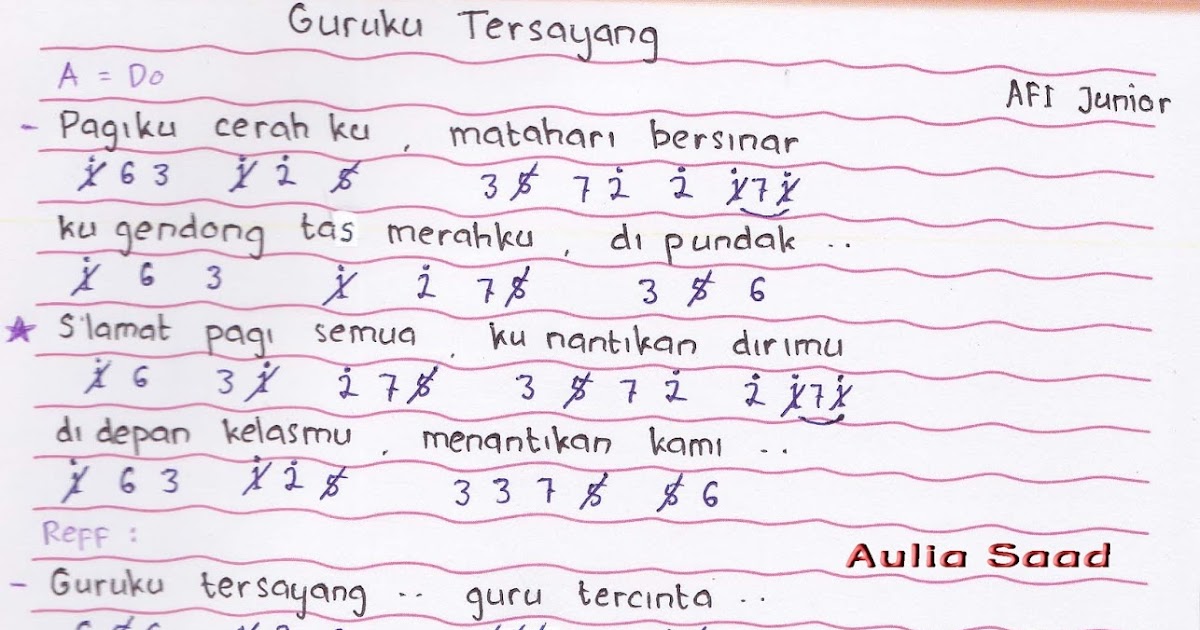 Guruku Tersayang
A = Do
AFI Junior
- Pagiku cerah ku , matahari bersinar
1̸̇ 6 3 1̸̇ 2̇ 5̸ 3 5̸ 7 2̇ 2̇ 1̸̇ 7 1̸̇
ku gendong tas merahku , di pundak ..
1̸̇ 6 3 1̸̇ 2̇ 7 5̸ 3 5̸ 6
★ S'lamat pagi semua , ku nantikan dirimu
1̸̇ 6 3 1̸̇ 2̇ 7 5̸ 3 5̸ 7 2̇ 2̇ 1̸̇ 7 1̸̇
di depan kelasmu , menantikan kami ..
1̸̇ 6 3 1̸̇ 2̇ 5̸ 3 3 7 5̸ 5̸ 6
Reff :
Aulia Saad
- Guruku tersayang .. guru tercinta ..